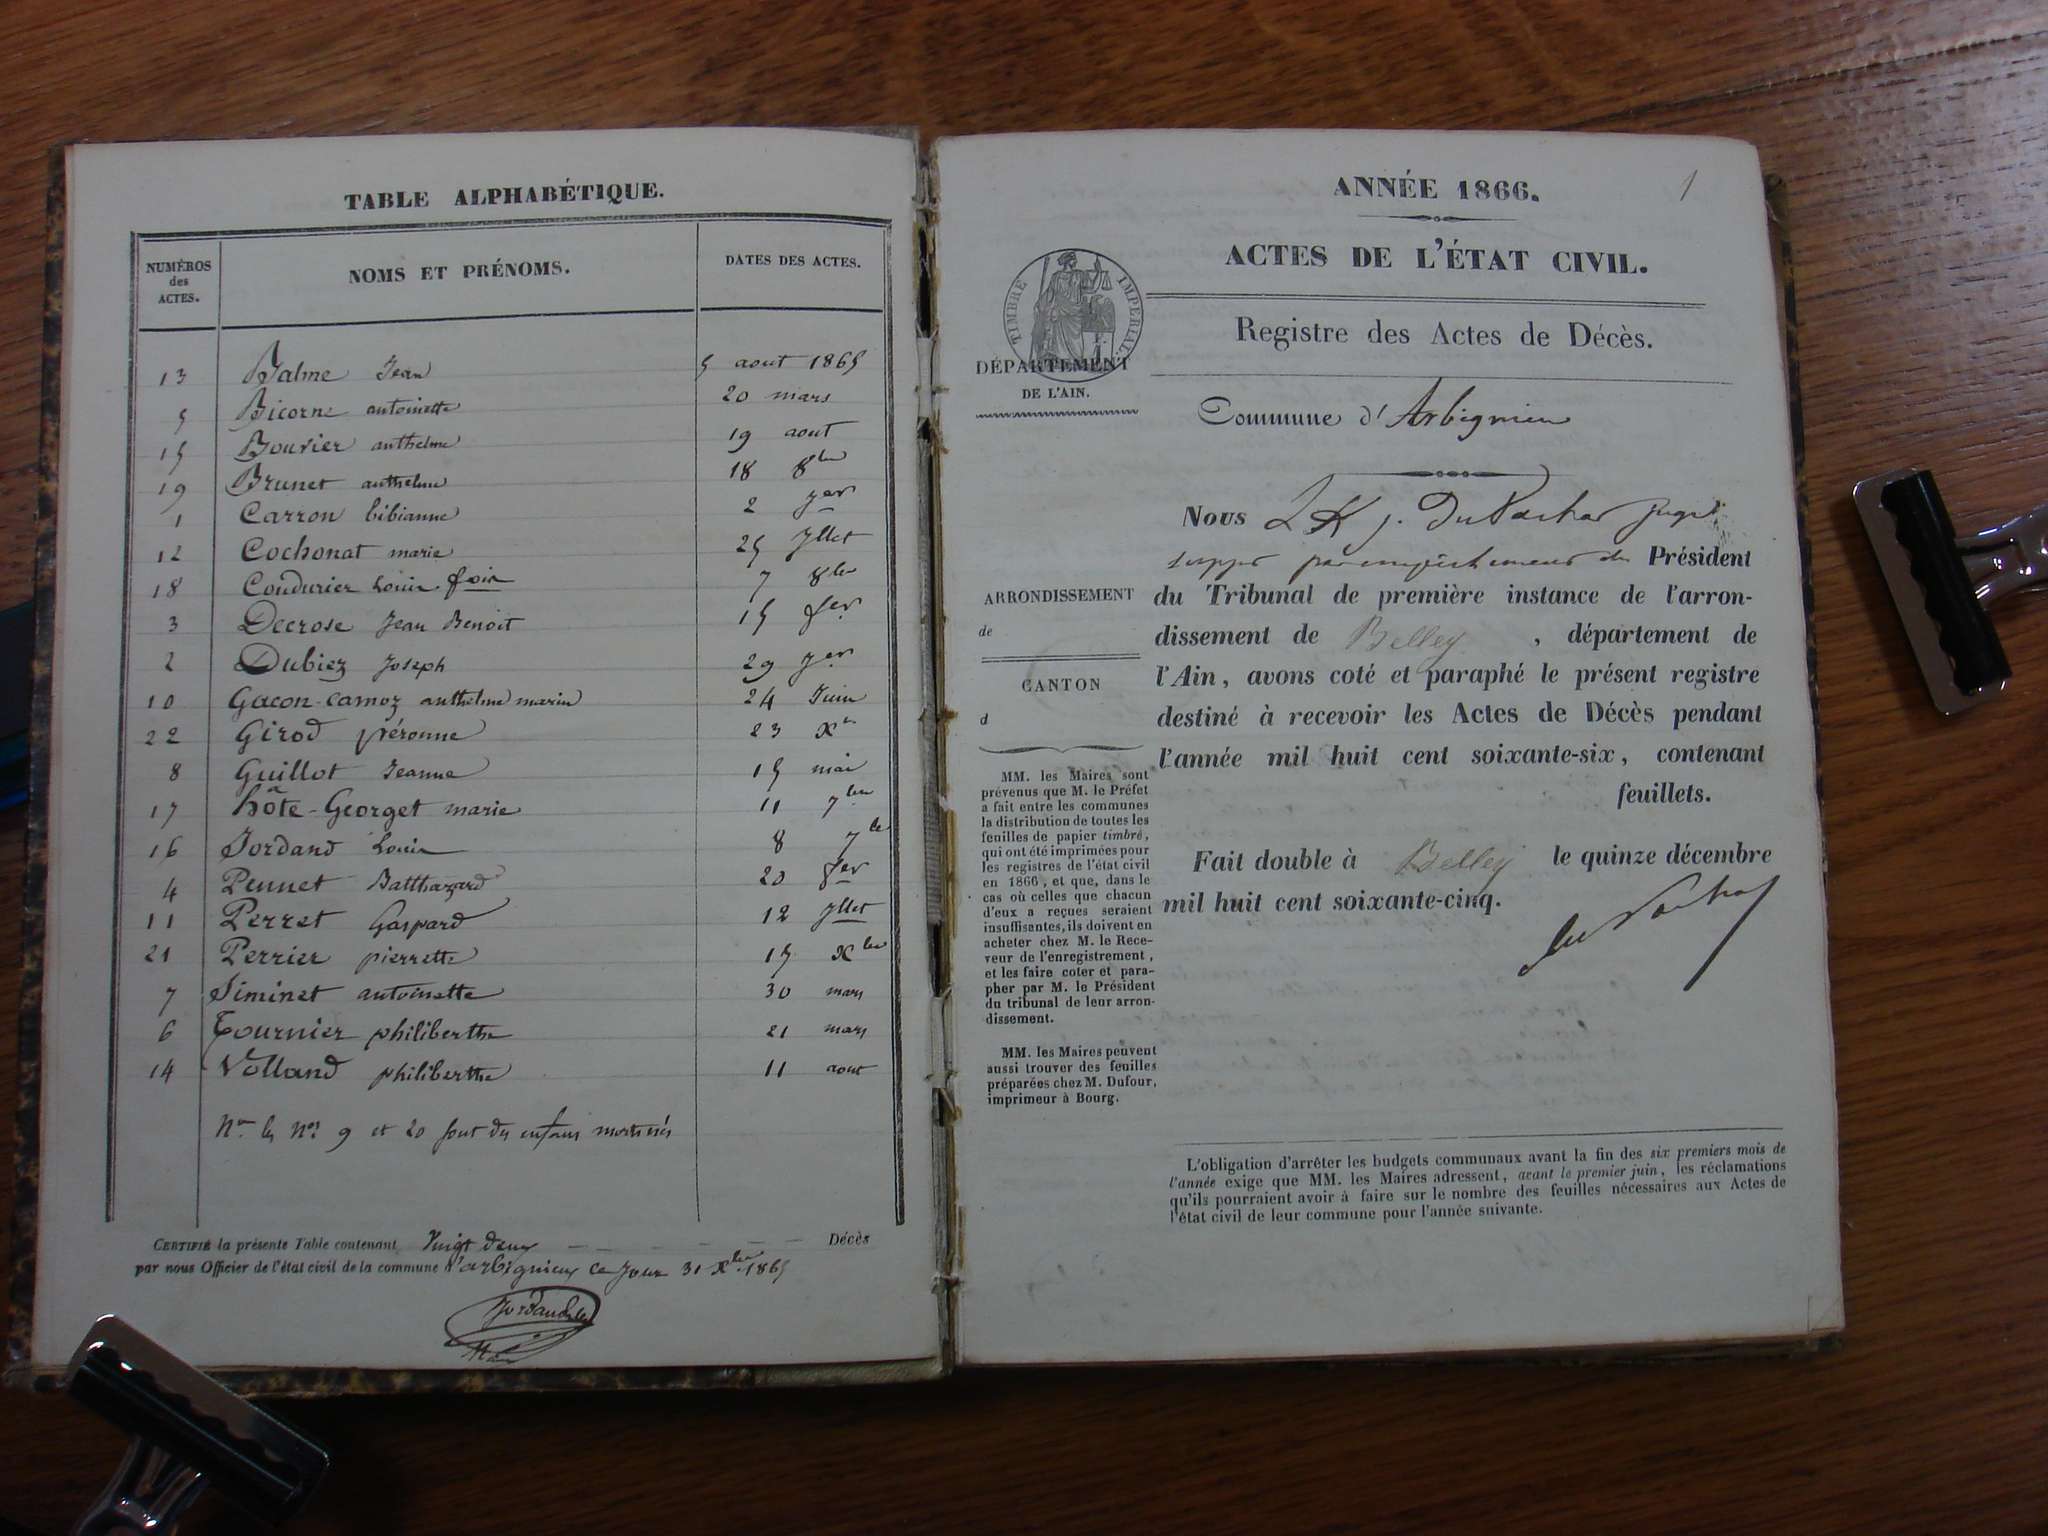 TABLE ALPHABÉTIQUE.
NUMÉROS des ACTES. NOMS ET PRÉNOMS. DATES DES ACTES.
13 Balme Jean 5 aout 1865
5 Bicorne antoinette 20 mars
15 Bouvier anthelme 19 aout
19 Brunet anthelme 18 8bre
1 Carron bibianne 2 Jer
12 Cochonat marie 25 Jllet
18 Coudurier Louis foix 7 8bre
3 Decrose Jean Benoit 15 fer
2 Dubiez Joseph 29 Jer
10 Gacon-camoz anthelme marin 24 Juin
22 Girod péronne 23 Xre
8 Guillot Jeanne 15 mai
17 hôte-Georget marie 11 7bre
16 Jordand Louis 8 7bre
4 Pennet Balthazard 20 fer
11 Perret Gaspard 12 Jllet
21 Perrier pierrette 15 Xbre
7 Siminet antoinette 30 mars
6 Tournier philiberthe 21 mars
14 Volland philiberthe 11 aout
Nta les Nos 9 et 20 sont des enfans morts nés
CERTIFIÉ la présente Table contenant Vingt deux Décès
par nous Officier de l'état civil de la commune d'arbignieu ce jour 31 Xbre 1865
1
ANNÉE 1866.
ACTES DE L'ÉTAT CIVIL.
TIMBRE IMPÉRIAL
Registre des Actes de Décès.
DÉPARTEMENT
DE L'AIN.
Commune d'Arbignieu
ARRONDISSEMENT
de
CANTON
d
MM. les Maires sont
prévenus que M. le Préfet
a fait entre les communes
la distribution de toutes les
feuilles de papier timbré,
qui ont été imprimées pour
les registres de l'état civil
en 1866, et que, dans le
cas où celles que chacun
d'eux a reçues seraient
insuffisantes, ils doivent en
acheter chez M. le Rece-
veur de l'enregistrement,
et les faire coter et para-
pher par M. le Président
du tribunal de leur arron-
dissement.
MM. les Maires peuvent
aussi trouver des feuilles
préparées chez M. Dufour,
imprimeur à Bourg.
Nous
par empêchement du Président
du Tribunal de première instance de l'arron-
dissement de Belley, département de
l'Ain, avons coté et paraphé le présent registre
destiné à recevoir les Actes de Décès pendant
l'année mil huit cent soixante-six, contenant
feuillets.
Fait double à Belley le quinze décembre
mil huit cent soixante-cinq.
L'obligation d'arrêter les budgets communaux avant la fin des six premiers mois de
l'année exige que MM. les Maires adressent, avant le premier juin, les réclamations
qu'ils pourraient avoir à faire sur le nombre des feuilles nécessaires aux Actes de
l'état civil de leur commune pour l'année suivante.